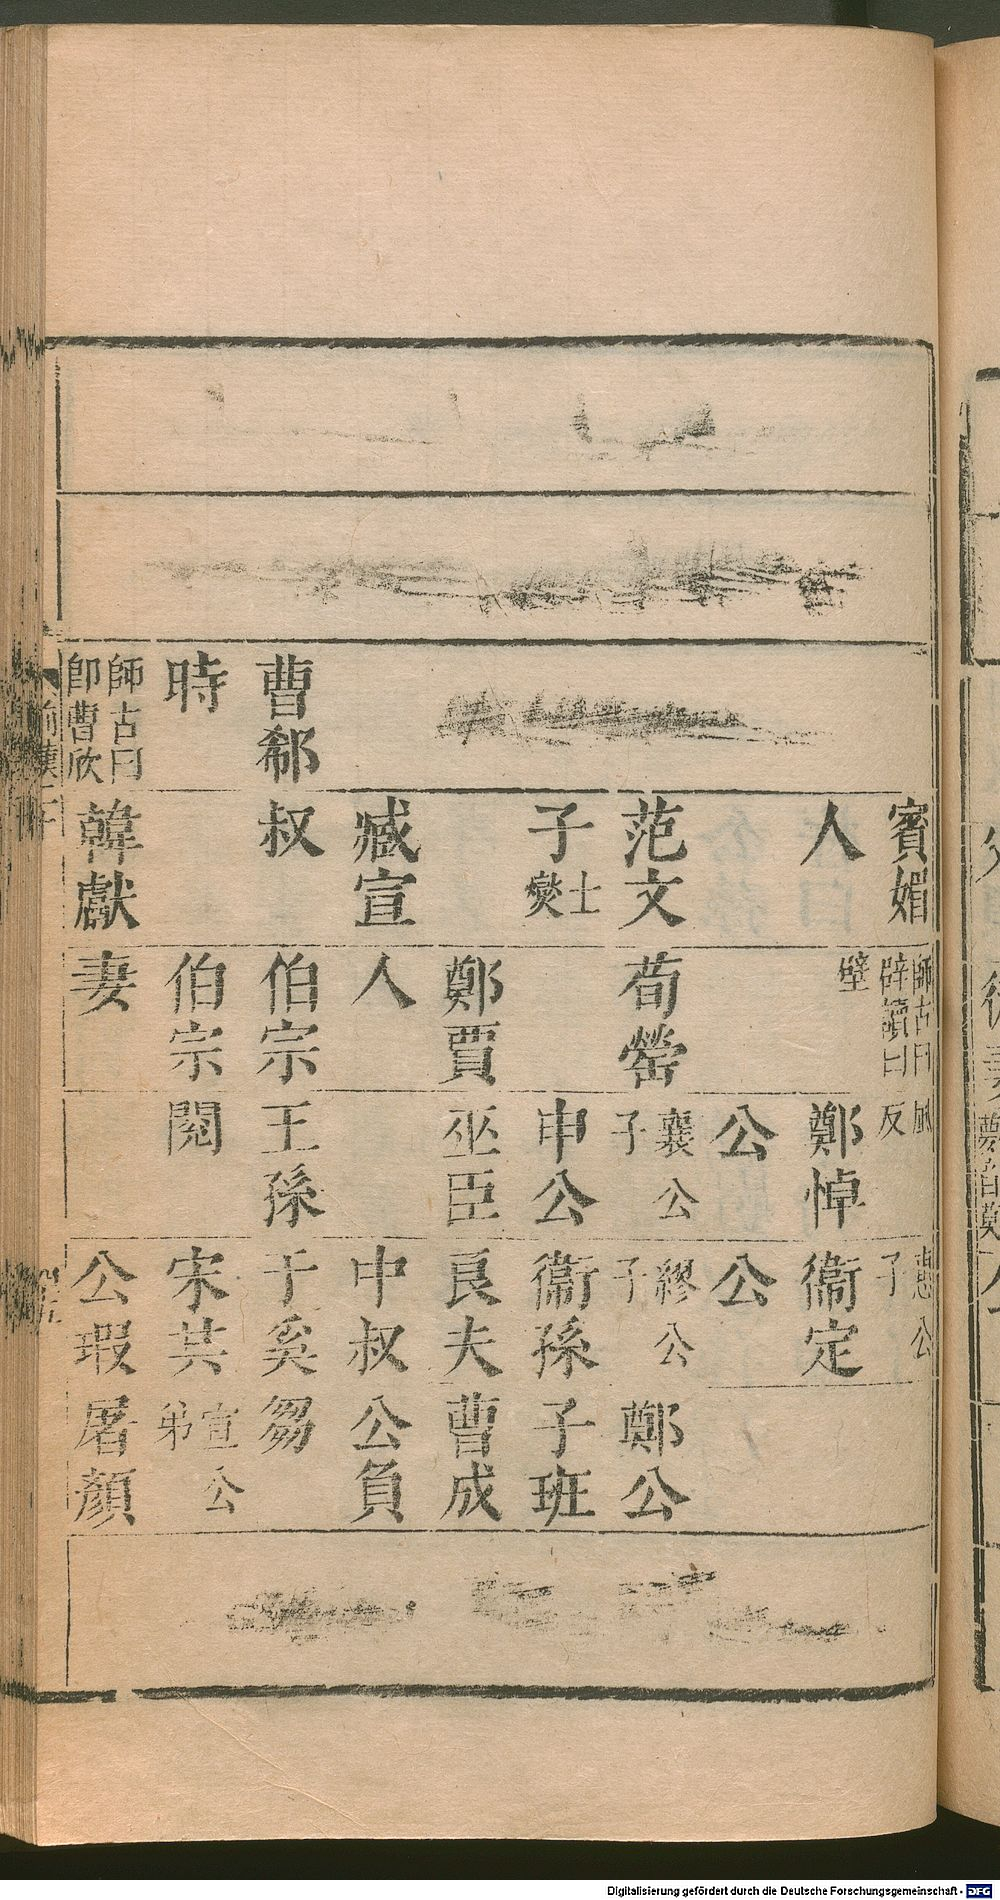 曹郗
時
師古曰
卽曹欣
賓媚
人
范文
子
士
燮
臧宣
叔
韓獻
師古曰
辟讀曰
壁
荀罃
鄭賈
人
伯宗
伯宗
妻
反
鄭悼
公
襄公
子
申公
巫臣
王孫
閱
惠公
子
衞定
公
繆公
子
衞孫
良夫
中叔
于奚
宋共
公瑕
鄭公
子班
曹成
公負
芻
宣公
弟
屠顏
Digitalisierung gefördert durch die Deutsche Forschungsgemeinschaft - DFG